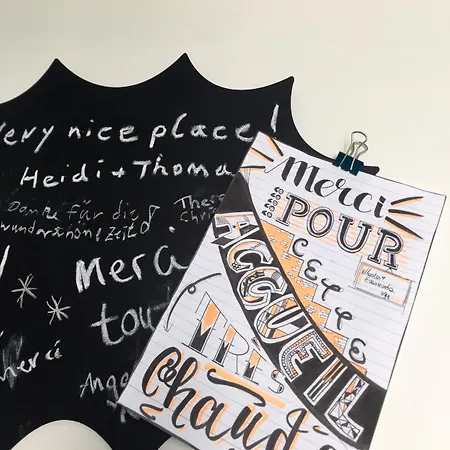 very nice place!
Heidi + Thoma
Danke für die
wunderschöne Zeit!
These
Chris
Merci
tou
merci
Ang
Merci
POUR
CETTE
ACCUEIL
TRÈS
Chaud